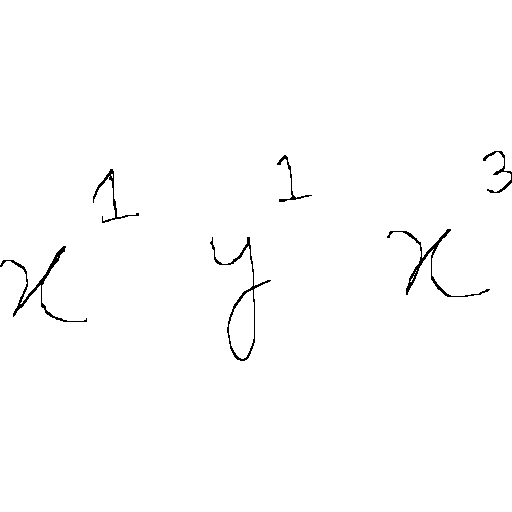 x¹ y¹ x³